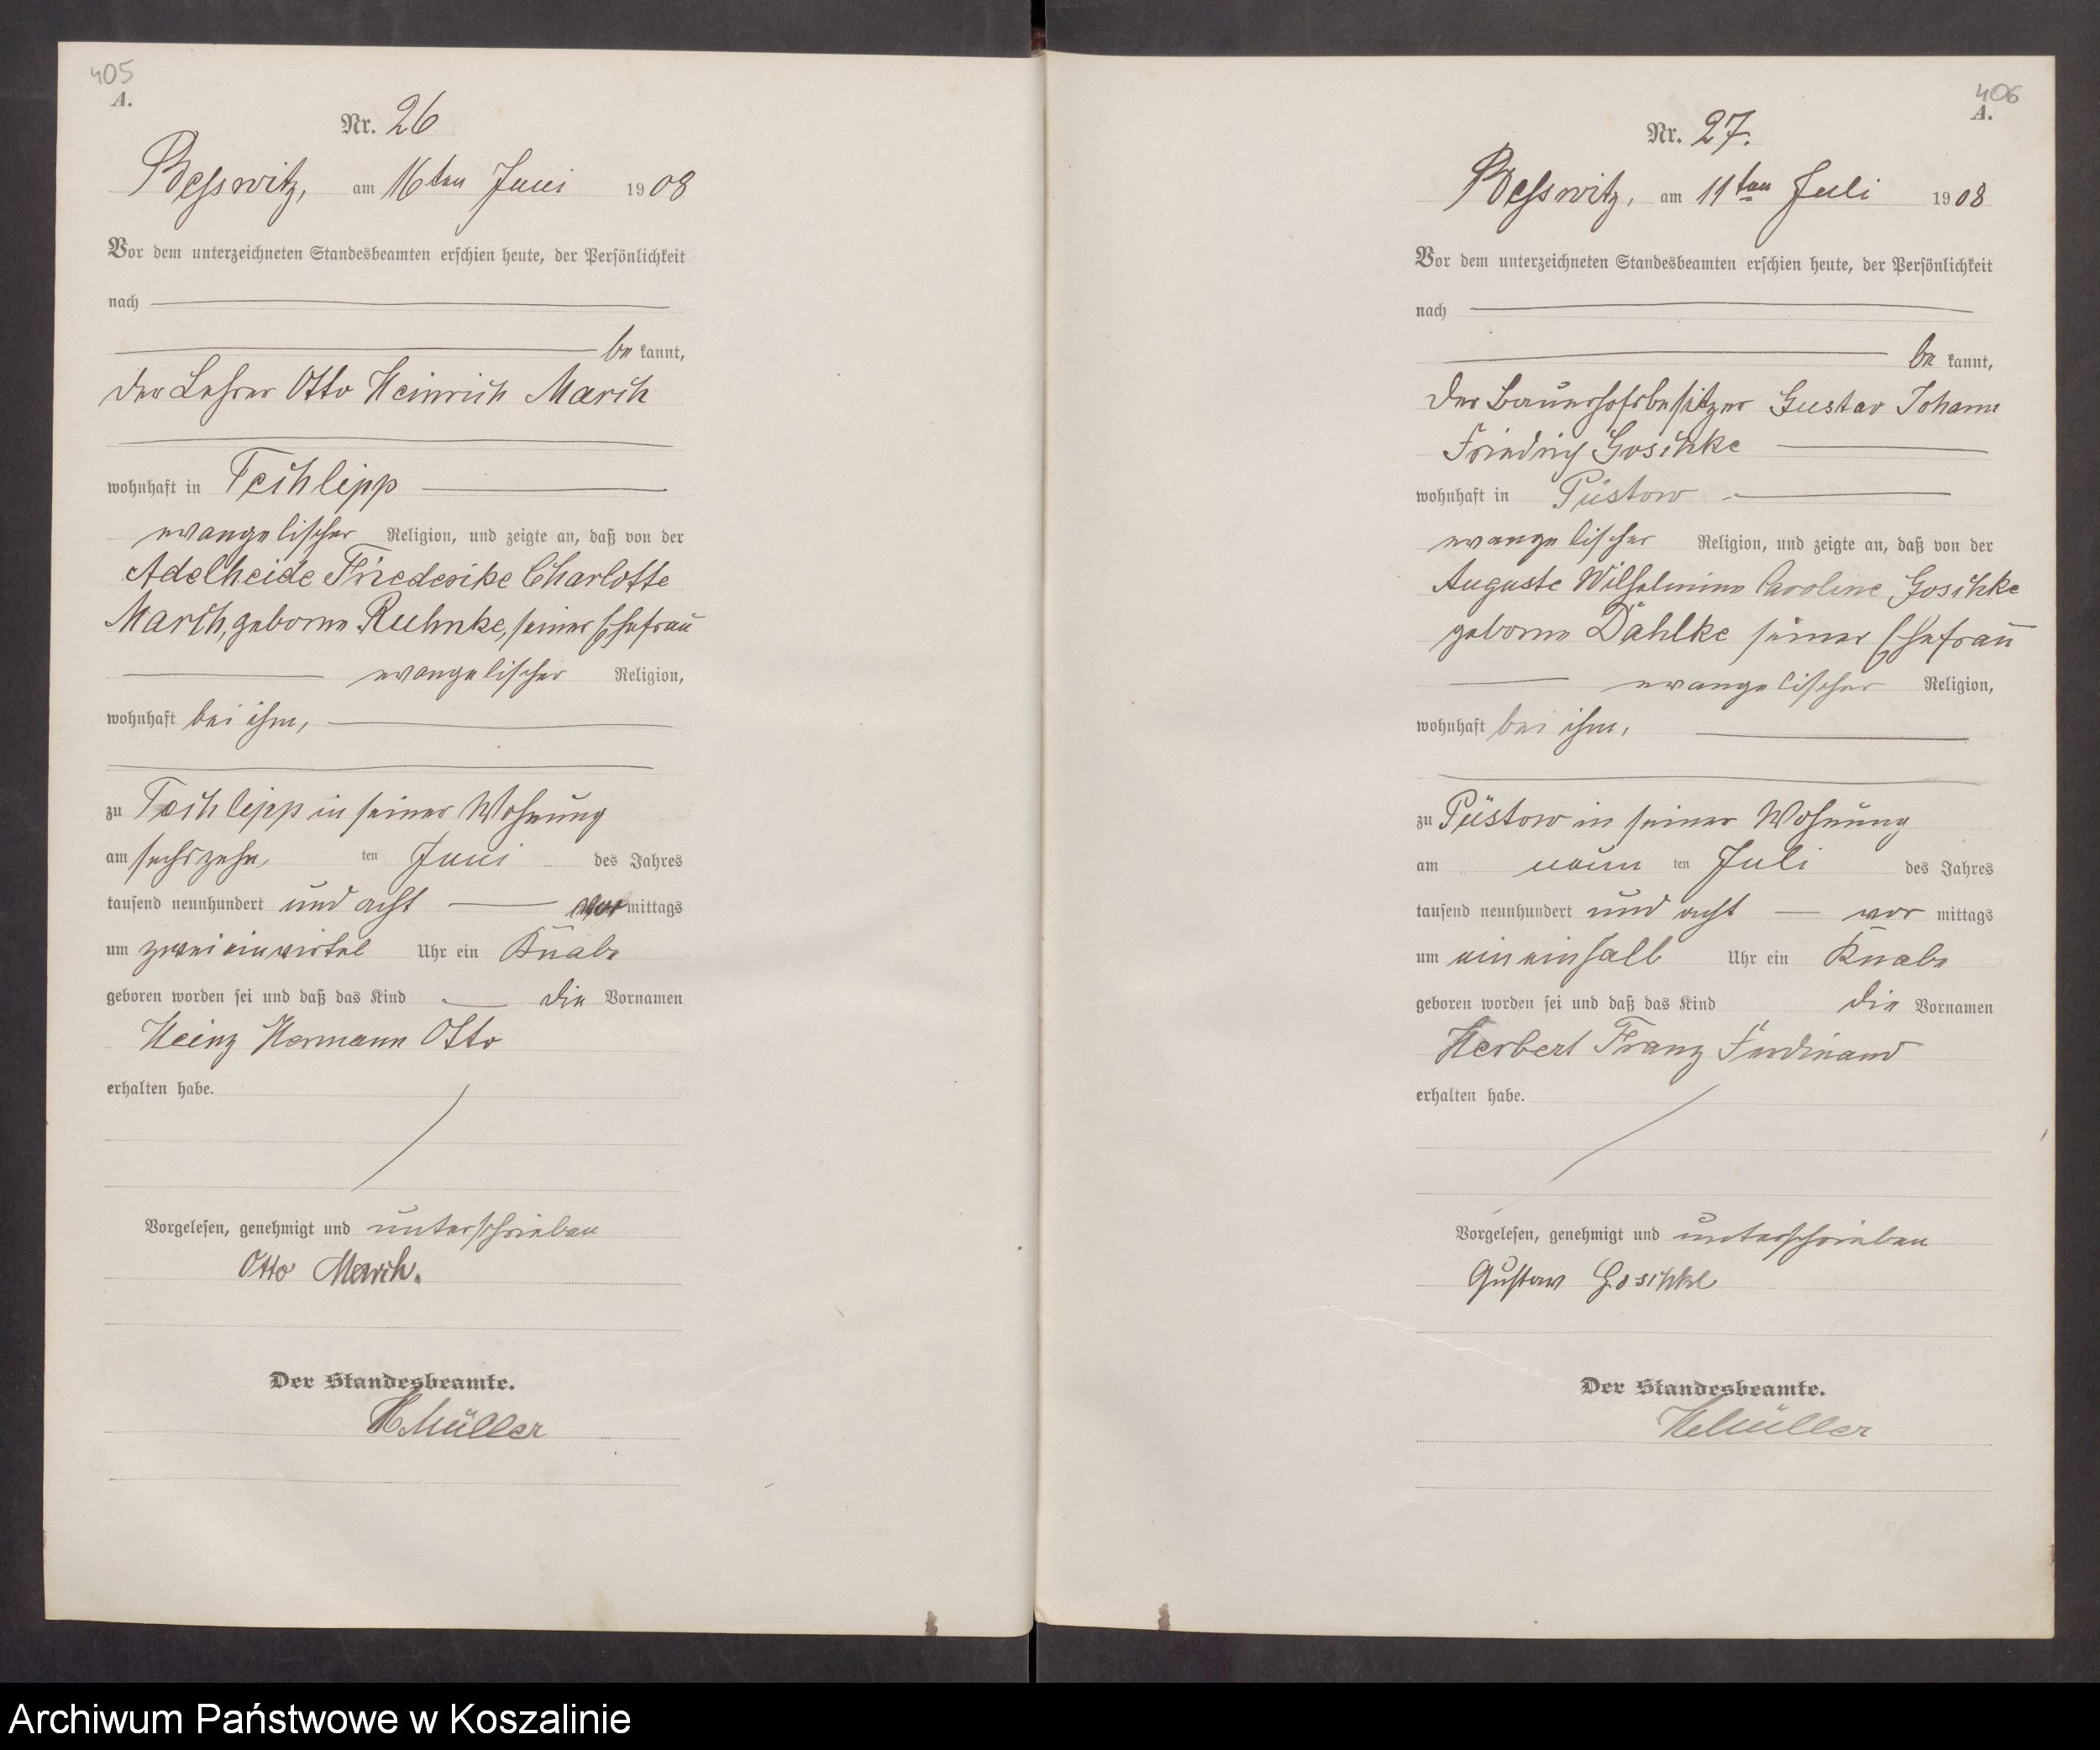 405
A.
Nr. 26
Besswitz, am 16ten Juni 1908
Vor dem unterzeichneten Standesbeamten erschien heute, der Persönlichkeit
nach
be kannt,
der Lehrer Otto Heinrich March
wohnhaft in Techlipp
evangelischer Religion, und zeigte an, daß von der
Adelheide Friederike Charlotte
March, geborne Ruhnke, seiner Ehefrau
evangelischer Religion,
wohnhaft bei ihm,
zu Techlipp in seiner Wohnung
am sechszehn ten Juni des Jahres
tausend neunhundert und acht vor mittags
um zwei einviertel Uhr ein Knabe
geboren worden sei und daß das Kind die Vornamen
Heinz Hermann Otto
erhalten habe.
Vorgelesen, genehmigt und unterschrieben
Otto March.
Der Standesbeamte.
HMüller
406
A.
Nr. 27.
Besswitz, am 11ten Juli 1908
Vor dem unterzeichneten Standesbeamten erschien heute, der Persönlichkeit
nach
be kannt,
der Bauerhofsbesitzer Gustav Johann
Friedrich Goschke
wohnhaft in Püstow
evangelischer Religion, und zeigte an, daß von der
Auguste Wilhelmine Caroline Goschke
geborne Dahlke seiner Ehefrau
evangelischer Religion,
wohnhaft bei ihm,
zu Püstow in seiner Wohnung
am neun ten Juli des Jahres
tausend neunhundert und acht vor mittags
um ein einhalb Uhr ein Knabe
geboren worden sei und daß das Kind die Vornamen
Herbert Franz Ferdinand
erhalten habe.
Vorgelesen, genehmigt und unterschrieben
Gustav Goschke
Der Standesbeamte.
HMüller
Archiwum Państwowe w Koszalinie